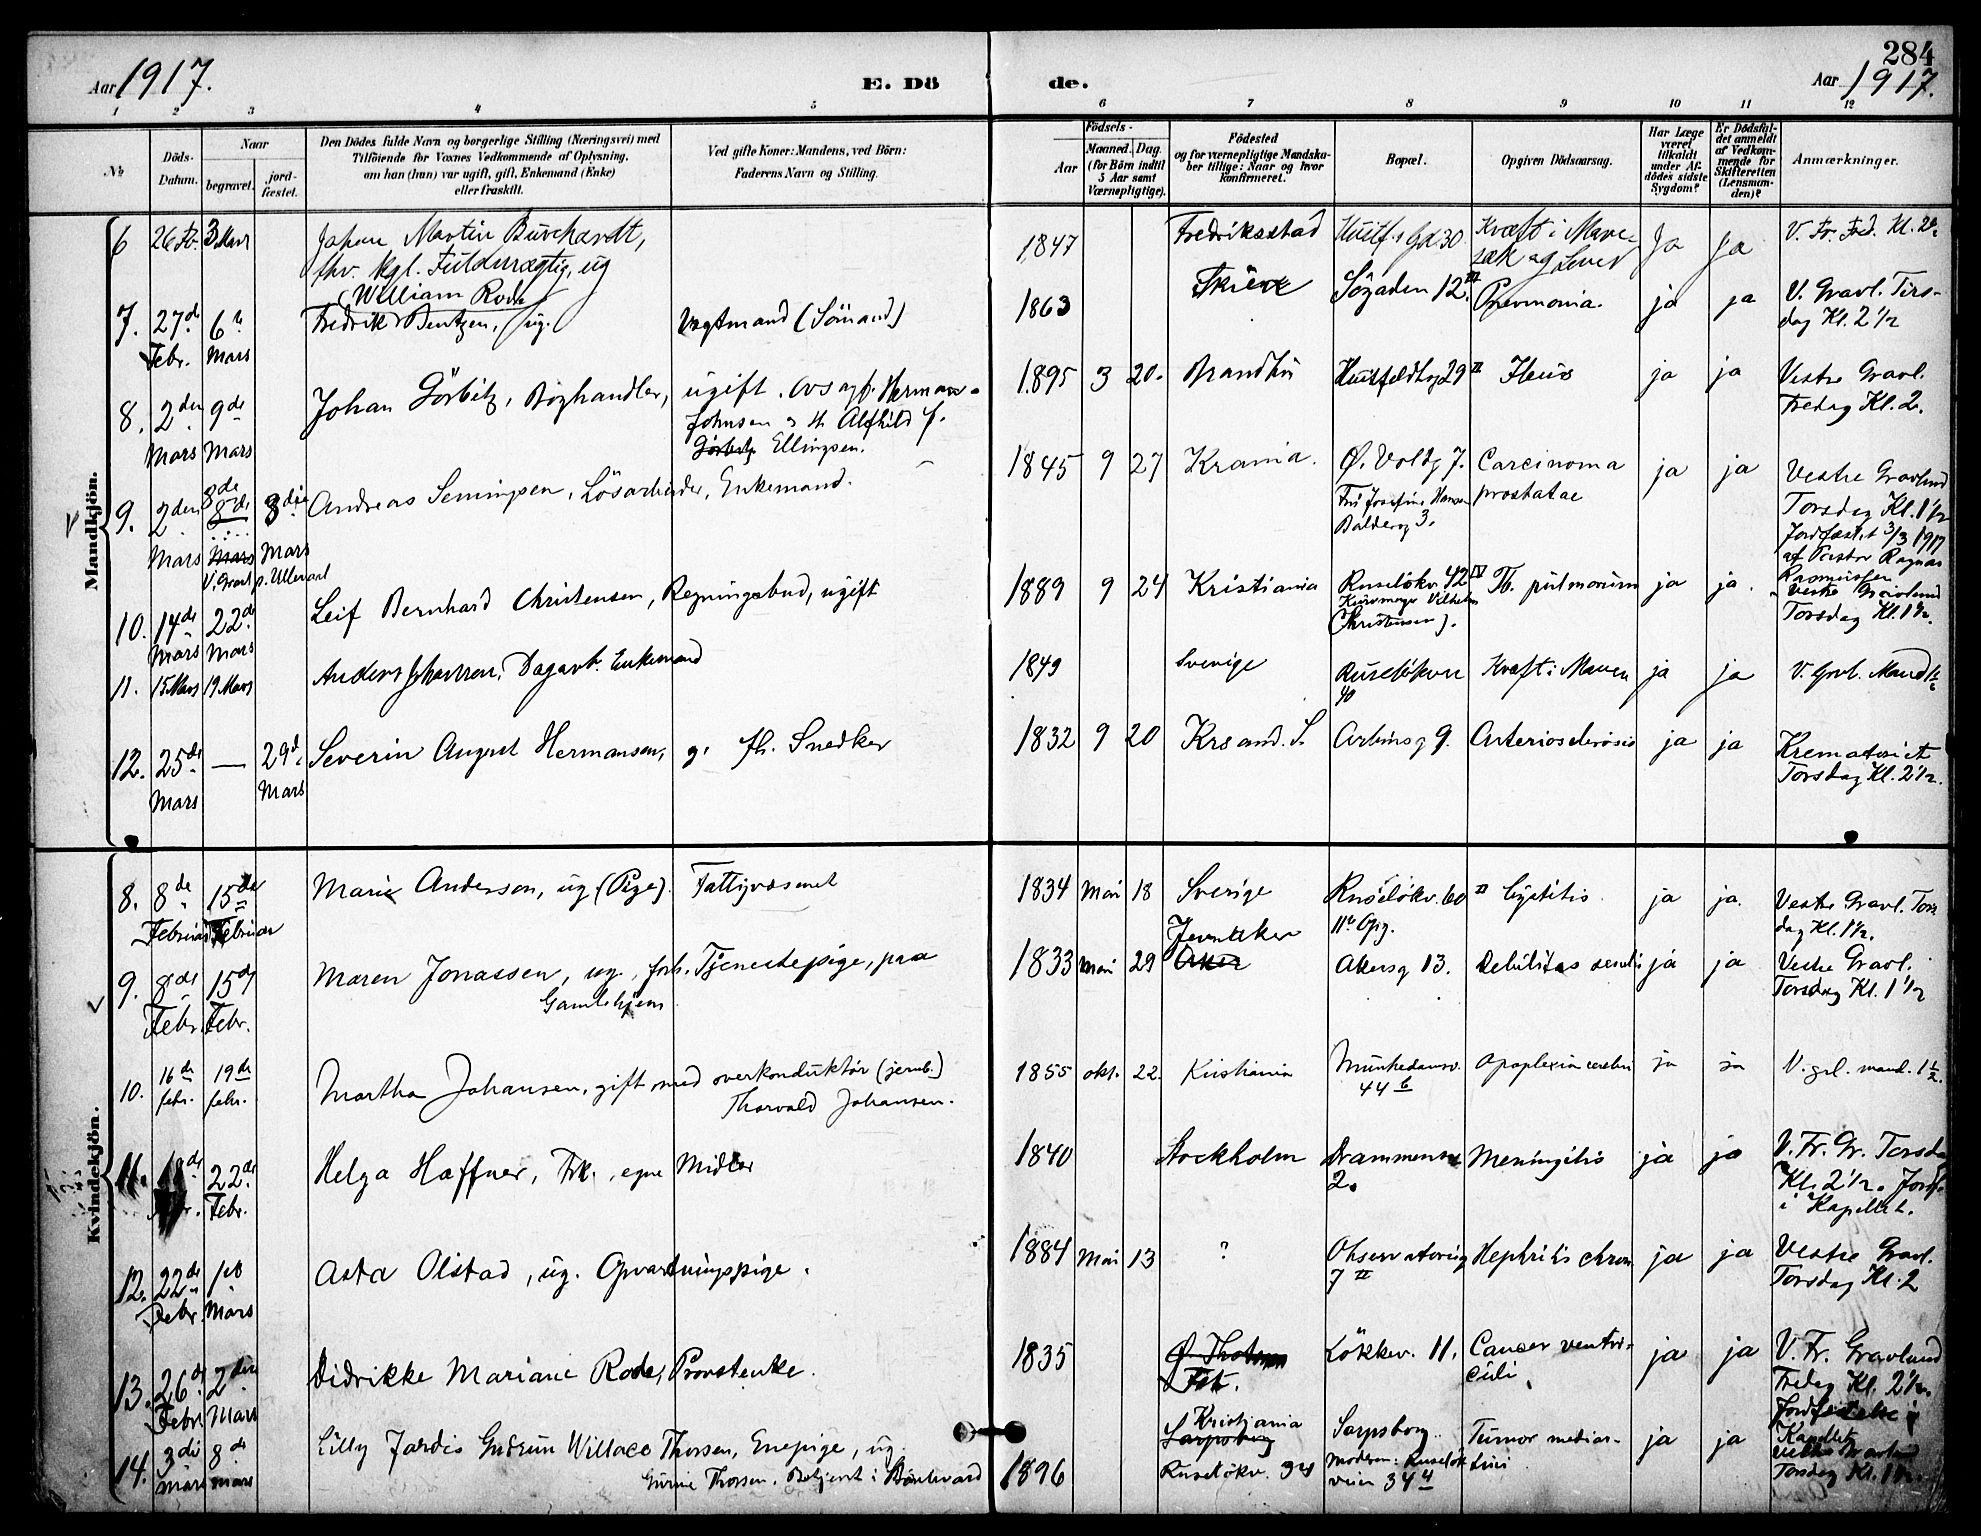 284
Aar 1917.
E. Dö
de.
Aar 1917.
1 2 3 4 5 6 7 8 9 10 11 12
№
Döds-
Datum.
Naar
begravet.
jord-
fæstet.
Den Dödes fulde Navn og borgerlige Stilling (Næringsvei) med
Tilföiende for Voxnes Vedkommende af Oplysning.
om han (hun) var ugift, gift, Enkemand (Enke)
eller fraskilt.
Ved gifte Koner: Mandens, ved Börn:
Faderens Navn og Stilling.
Födsels-
Aar
Maaned. Dag.
(for Börn indtil
5 Aar samt
Værnepligtige).
Födested
og for værnepligtige Mandska-
ber tillige: Naar og hvor
konfirmeret.
Bopæl.
Opgiven Dödsaarsag.
Har Læge
været
tilkaldt
under Af-
dödes sidste
Sygdom?
Er Dödsfal-
det anmeldt
af Vedkom-
mende for
Skifteretten
(Lensman-
den)?
Anmærkninger.
Mandkjön.
6 26 Fb. 3 Mars Johan Martin Burchardt, 1847 Fredriksstad Huitf.s gd 30 Kræft i Mave- Ja Ja V. Fr. Fred. Kl.
fhv. kgl. Fuldmægtig, ug sæk og Lever
(William Rode)
7. 27de 6te Fredrik Bentzen, ug. Vagtmand (Sömand) 1863 Skien Sögaden 12 III Pneumonia. ja ja V. Gravl. Tirs-
Febr. Mars dag Kl. 2 1/2
8. 2den 9de Johan Görbitz, Boghandler, ugift. 1895 3 20. Huitfeldtsg 29 II Ileus ja ja Vestre Gravl.
Mars Mars Johnsen Alfhild f. Fredag Kl. 2.
Görbitz Ellingsen.
9. 2den 8de 8de Andreas Semingsen, Lösarbeider, Enkemand. 1845 9 27 Krania. Ø. Voldg 7. Carcinoma ja ja Vestre Gravlund
Mars Mars Mars Frk Josefine Hansen prostatae Torsdag Kl. 1 1/2
V. Gravl p. Ullevaal Balderg 3. Jordfæstet 3/3 1917
af Pastor Ragnar
Rasmussen
10. 14de 22de Leif Bernhard Christensen, Regningsbud, ugift 1889 9 24 Kristiania Ruselökv. 42 IV Tb. pulmonum ja ja. Vestre Gravlund
Mars Mars Vilhelm Torsdag Kl. 1 1/2.
Christensen).
11. 15 Mars 19 Mars Anders Johansen, Dagarb. Enkemand 1849 Sverige Ruselökvn Kræft i Maven ja ja V. Grvl. Mand
40
12. 25de — 29de Severin August Hermansen, g. fh. Snedker 1832 9 20 Krsand. S. Arbinsg 9. Arteriosclerosis ja ja Krematoriet
Mars Mars Torsdag Kl. 2 1/2.
Kvindekjön.
8. 8de 15de Marie Anderson, ug (Pige). Fattigvæsenet 1834 Mai 18 Sverige Ruselökv. 60 II Cystitis. ja ja. Vestre Gravl. Tors
Februar Februar dag Kl. 1 1/2.
9. 8de 15de Maren Jonassen, ug., forh. Tjenestepige, paa 1833 Mai 29 Jevnaker Aker Akersg 13. Debilitas senilis ja ja Vestre Gravl.
Febr. Febr. Gamlehjem Torsdag Kl. 1 1/2
10. 16de 19de Martha Johansen, gift med overkonduktör (jernb.) 1855 okt. 22. Kristiania Munkedamsv. Apoplexia cerebri ja ja V. grl. mand. 1 1/2.
febr. febr. Thorvald Johansen. 44 b
11. 18de 22de Helga Haffner, Frk., egne Midler 1840 Stockholm Drammensv. Meningitis ja ja V. Fr. Gr. Torsda
Febr. 2. Kl. 2 1/2. Jordf.
i Kapellet.
12. 22de Asta Olstad, ug. Opvartningspige. 1884 Mai 13 ? Observatoriig Nephritis chron ja ja Vestre Gravl.
Febr. Mars 7 II Torsdag Kl. 2
13. 26de 2den Didrikke Mariane Rode, Provstenke. 1835 Ø. Thoten Fet. Lökkev. 11. Cancer ventri- ja ja V. Fr. Gravlund
Febr. Mars culi Fredag Kl. 2 1/2.
Jordfæstelse i
Kapellet.
14. 3die 8de Lilly Jardis Gudrun Willace Thorsen, Enepige, ug. 1896 Kristiania Sarpsborg Sarpsborg. Tumor medias- ja ja Vestre Gravlund
Mars Mars Thorsen. Betjent i Boulevard Ruselökv. 34 Moderen: Ruselök tini Torsdag Kl.
veien 34 4